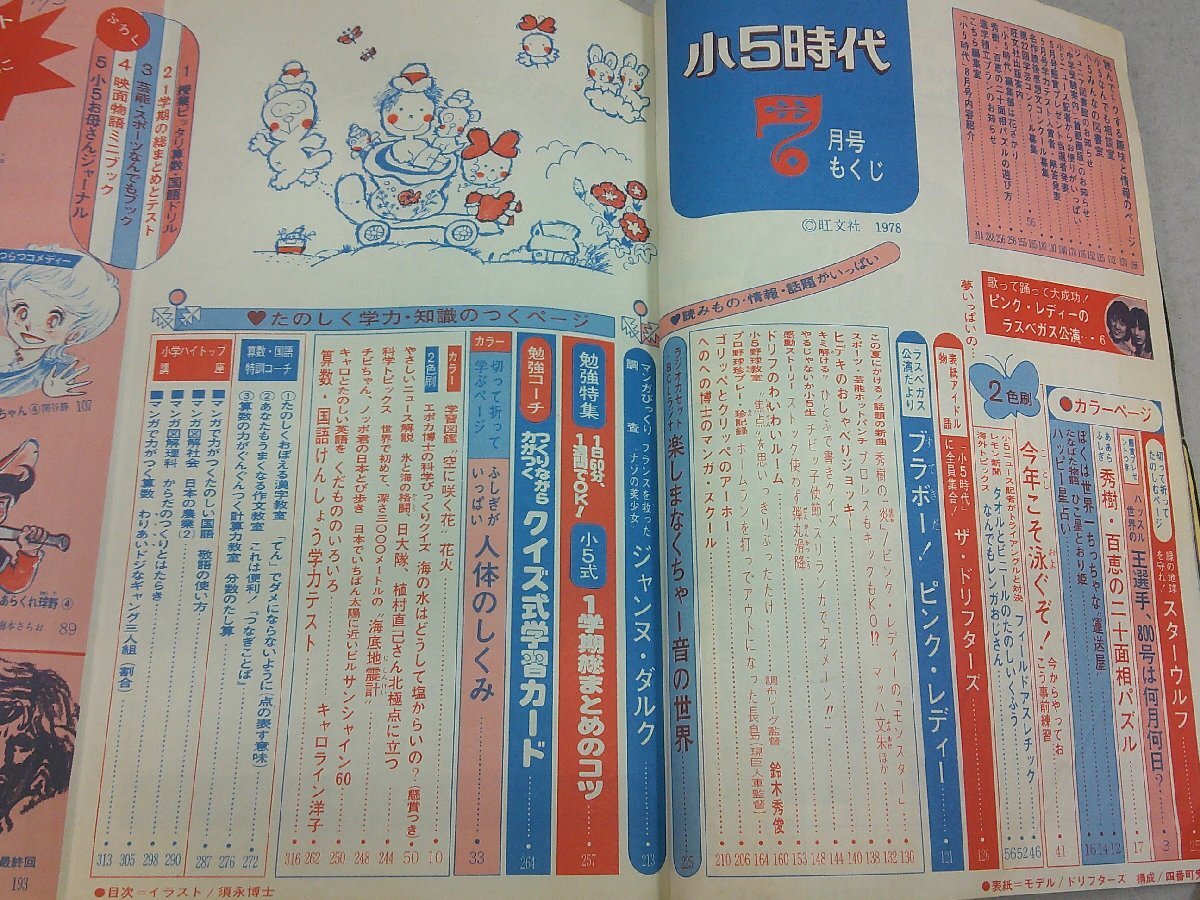 小5時代
7
月号
もくじ
©旺文社 1978
読んでトクする趣味と情報のページ
小5なんでも相談室
小5みんなの図書室
ジュニア図書館のお知らせ
第22回学芸コンクール募集
旺文社出版案内
「小5時代」編集部は花ざかり
秀樹・百恵の二十面相パズルの遊び方
進学積立プランのお知らせ
こちら編集室
「小5時代」8月号内容紹介
歌って踊って大成功!
ピンク・レディーの
ラスベガス公演…6
夢いっぱいの…
●カラーページ
切って折って
たのしむページ
緑の地球
を守れ!
スターウルフ
3
ハッスル
世界の
王選手、800号は何月何日?
17
ふしぎ
秀樹・百恵の二十面相パズル
12
ハッピー星占い
14
たなばた物語 ひこ星とおり姫
ぼくは世界一ちっちゃな運送屋
16
2色刷
今年こそ泳ぐぞ!
今からやってお
こう事前練習
41
小5ニュース記者がトライアングルと対決 フィールドアスレチック
46
レモン新聞 タオルとビニールのたのしいくふう
52
海外トピックス なんでもレンガおじさん
56
表紙アイドル
物語
「小5時代」
に全員集合!
ザ・ドリフターズ
126
ラスベガス
公演だより
ブラボー!ピンク・レディー
121
♥読みもの・情報・話題がいっぱい
この夏にかける!話題の新曲 秀樹の「炎」/ピンク・レディーの「モンスター」
130
スポーツ・芸能ホットパンチ プロレスもキックもKO!? マッハ文朱ほか
132
ヒデキのおしゃべりジョッキー
138
キミ解ける?ひとふで書きクイズ
144
やるじゃないか小5生 チビッ子使節、スリランカでオー!!
148
感動ストーリー ストック使わず弾丸滑降
153
ドリフのわいわいルーム
160
小5野球教室 “黒点”を思いっきりぶったたけ
調布リーグ監督 鈴木秀俊
164
プロ野球珍プレー・珍記録 ホームランを打ってアウトになった長島(現巨人軍監督)
206
ゴリッペとクリッペのアーア
への博士のマンガ・スクール
210
ラジオカセット
BCLブック
楽しまなくちゃ音の世界
225
マンガびっくり
調査
フランスを救った
ナゾの美少女
ジャンヌ・ダルク
213
♥たのしく学力・知識のつくページ
勉強特集
1日50分、
1週間でOK!
小5式
1学期総まとめのコツ
257
勉強コーチ
つくりながら
力がつく
クイズ式学習カード
264
カラー
切って折って
学ぶページ
ふしぎが
いっぱい
人体のしくみ
33
カラー
学習図鑑“空に咲く花”花火
10
2色刷
エポカ博士の科学びっくりクイズ 海の水はどうして塩からいの?(懸賞つき)
50
やさしいニュース解説 氷と海の格闘、日大隊、植村直己さん北極点に立つ
244
科学トピックス 世界で初めて、深さ三〇〇〇メートルの“海底地震計”
248
チビちゃん、ノッポ君の日本とび歩き 日本でいちばん太陽に近いビルサンシャイン60
250
キャロとたのしい英語を くだもののいろいろ キャロライン洋子
262
算数・国語けんしょう学力テスト
316
算数・国語
特訓コーチ
①たのしくおぼえる漢字教室 「てん」でダメにならないように(点の表す意味)
272
②あなたもうまくなる作文教室 これは便利!「つなぎことば」
276
③算数の力がぐんぐんつく計算力教室 分数のたし算
287
小学ハイトップ
講座
■マンガで力がつくたのしい国語 敬語の使い方
290
■マンガ図解社会 日本の農業(2)
298
■マンガ図解理科 からだのつくりとはたらき
305
■マンガで力がつく算数 わりあいドジなギャング三人組(割合)
313
●目次=イラスト/須永博士
●表紙=モデル/ドリフターズ 構成/四番町
ふろく
1 授業ピッタリ算数・国語ドリル
2 1学期の総まとめとテスト
3 芸能・スポーツなんでもブック
4 映画物語ミニブック
5 小5お母さんジャーナル
つらつコメディー
ちゃん④
107
あらくれ球野④
89
最終回
193